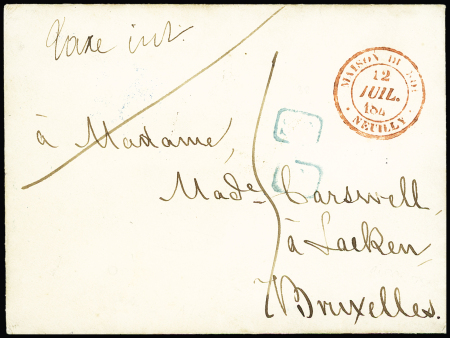 Taxe int.
MAISON DU ROI
12
JUIL.
184
NEUILLY
à Madame,
Made Carswell,
à Lacken,
Bruxelles.